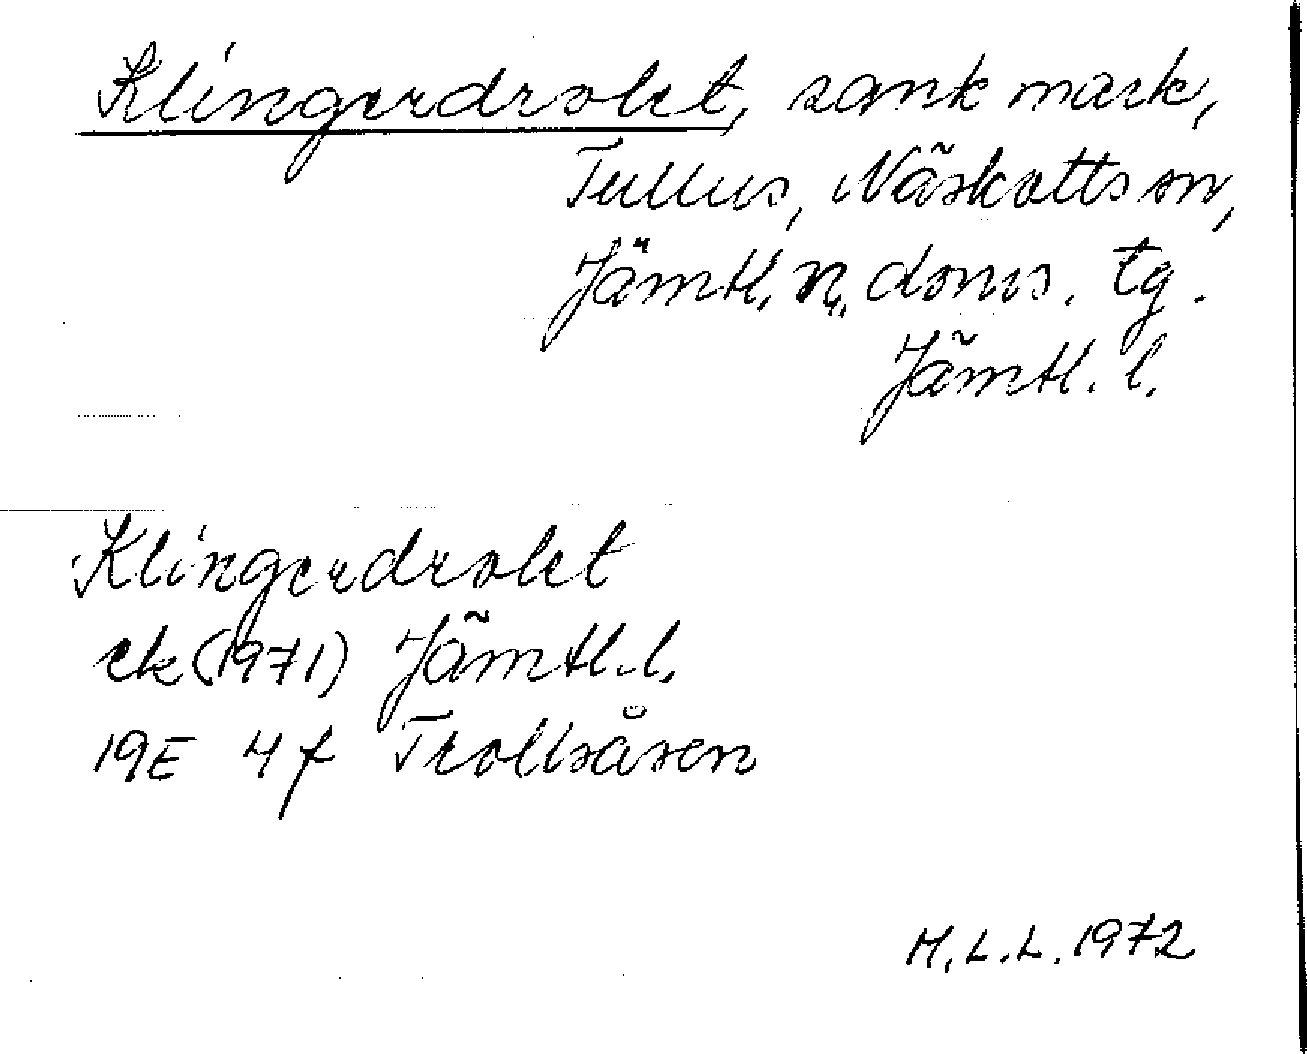 Klingerdroket, sank mark,
Tullus, Näskotts sn,
Jämtl. n. doms. tg.
Jämtl. l.
Klingerdroket
ek (1971) Jämtl. l.
19E 4f Trollsåsen
M.L.L. 1972